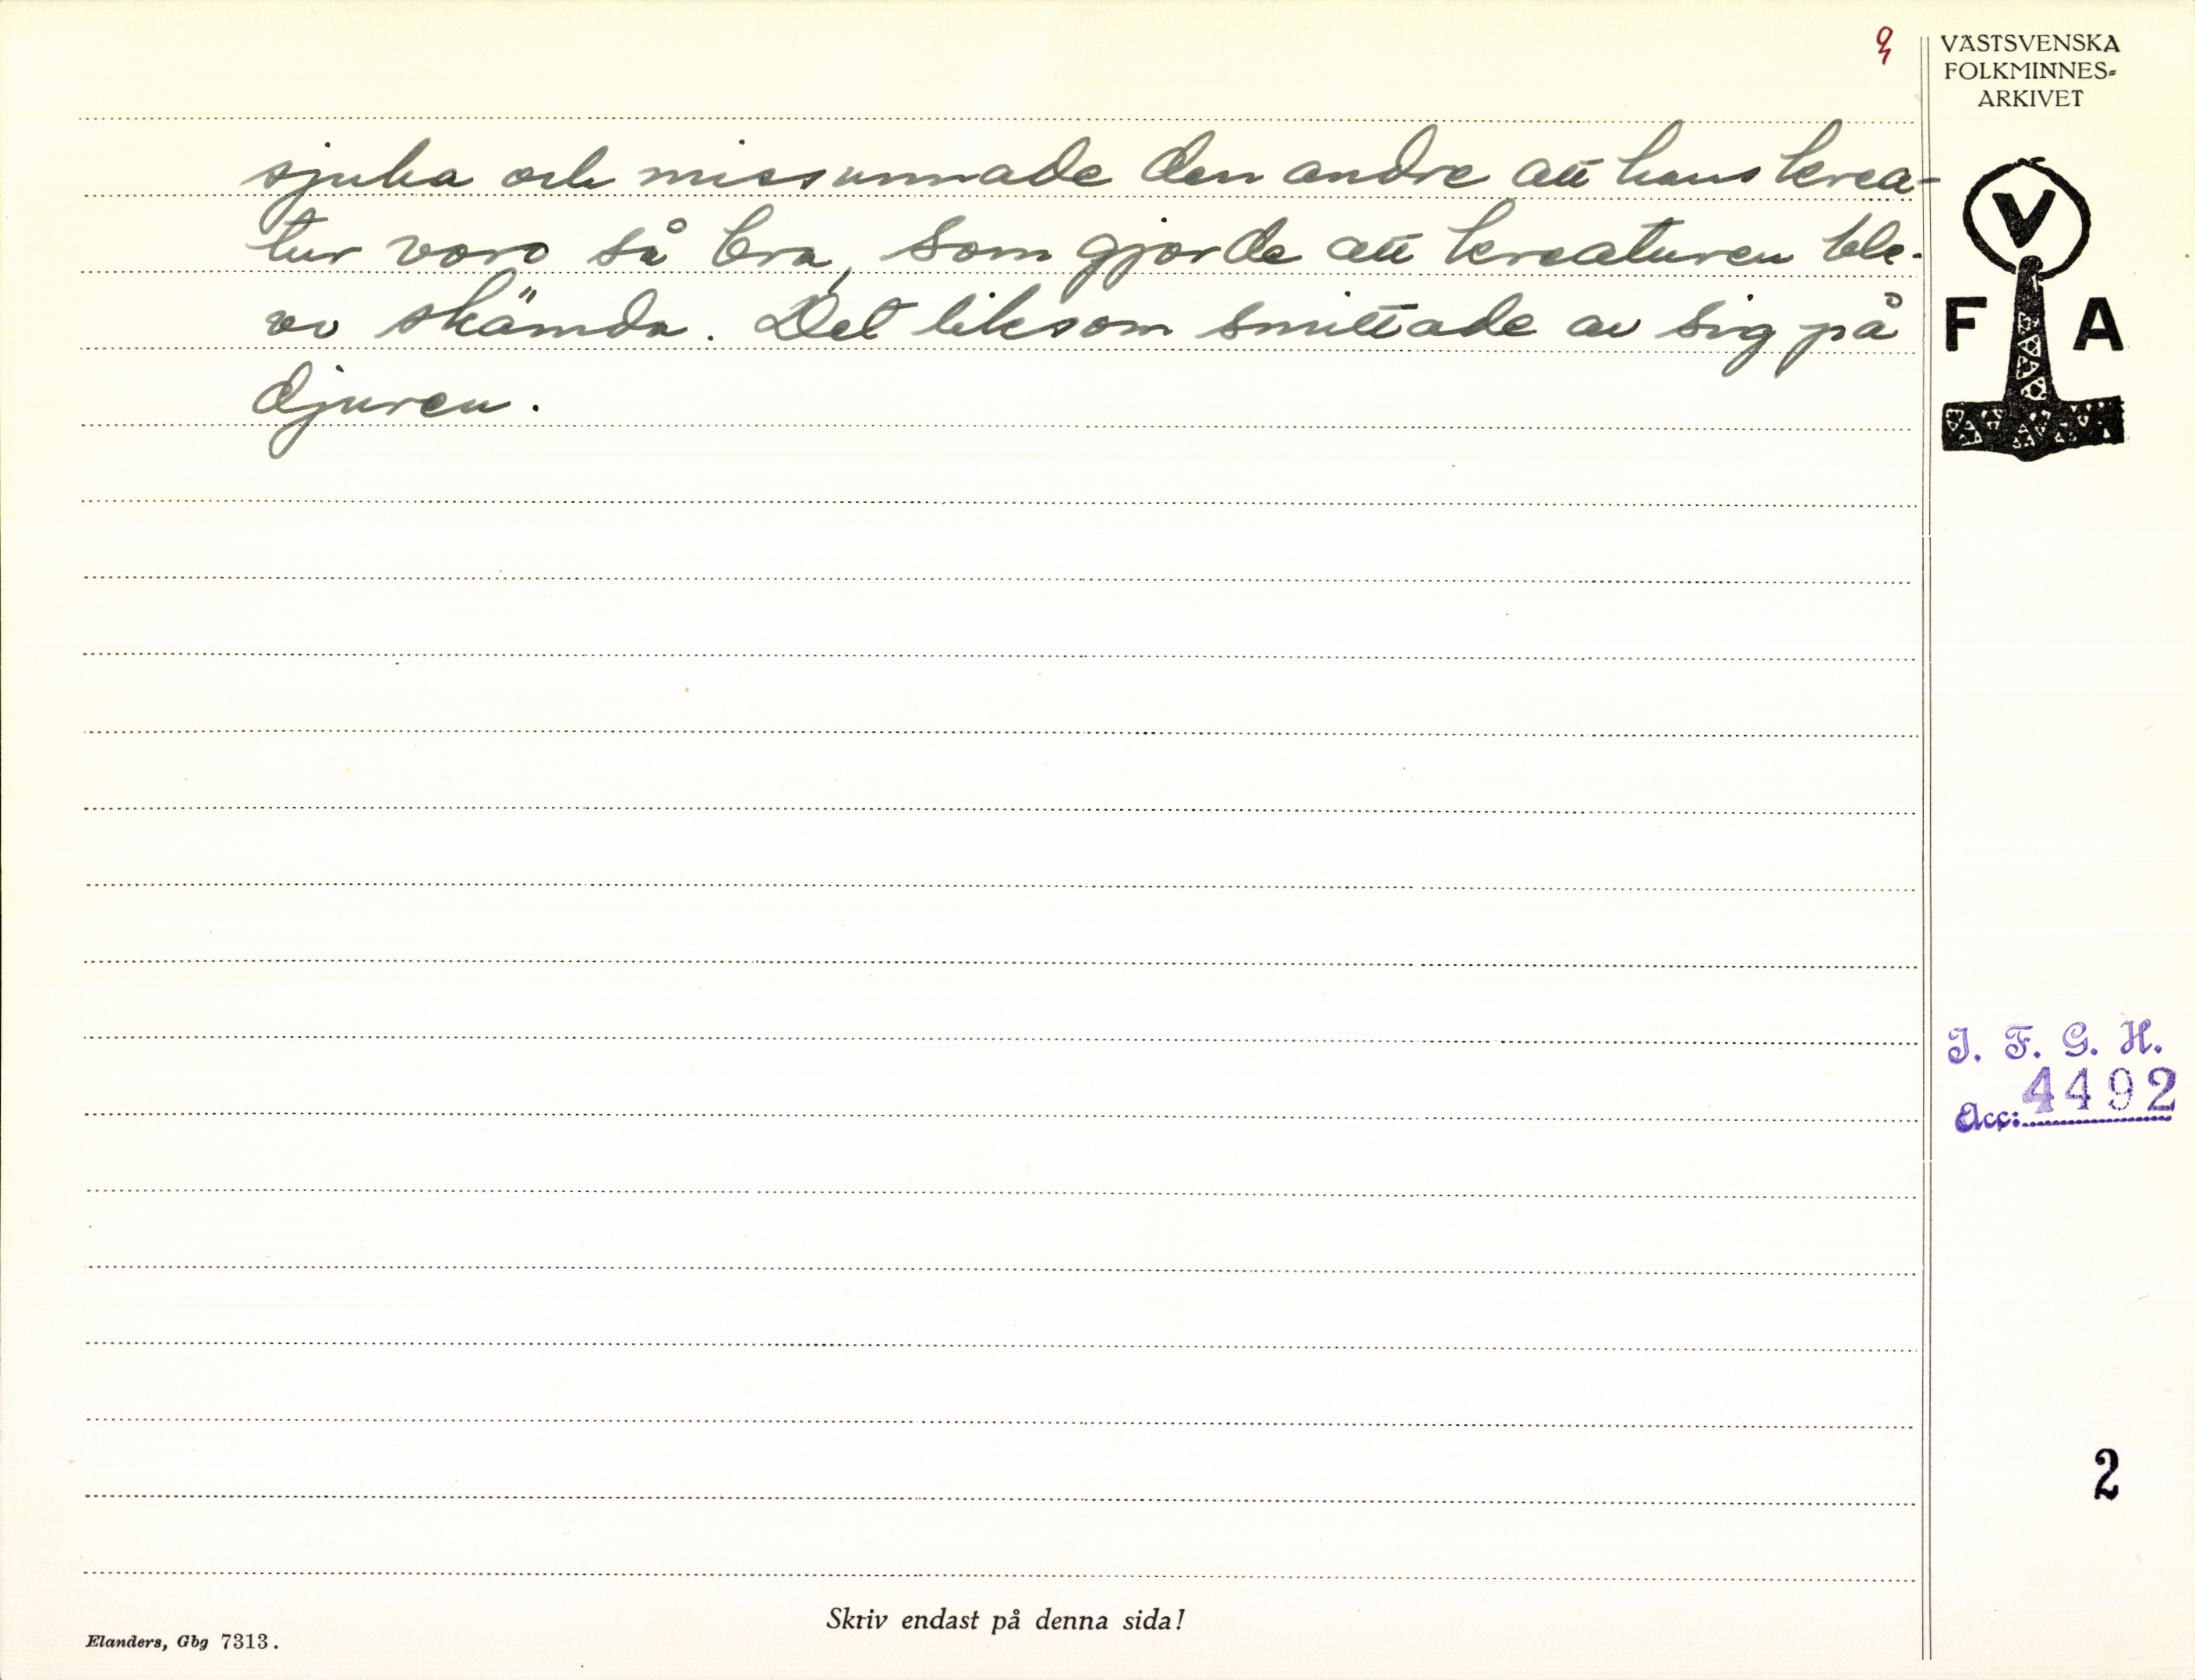 VÄSTSVENSKA
FOLKMINNES-
ARKIVET
sjuka och missunnade den andre att hans krea-
tur voro så bra, som gjorde att kreaturen ble-
vo skämda. Det liksom smittade av sig på
djuren.
V
F A
I. F. G. H.
Acc: 4492
2
Skriv endast på denna sida!
Elanders, Gbg 7313.